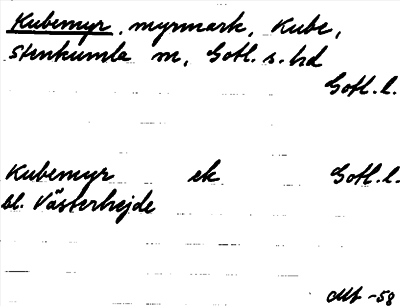 Kubemyr, myrmark, Kube,
Stenkumla m, Gotl. s. hd
Gotl. l.
Kubemyr ek Gotl. l.
bl. Västerhejde
-58